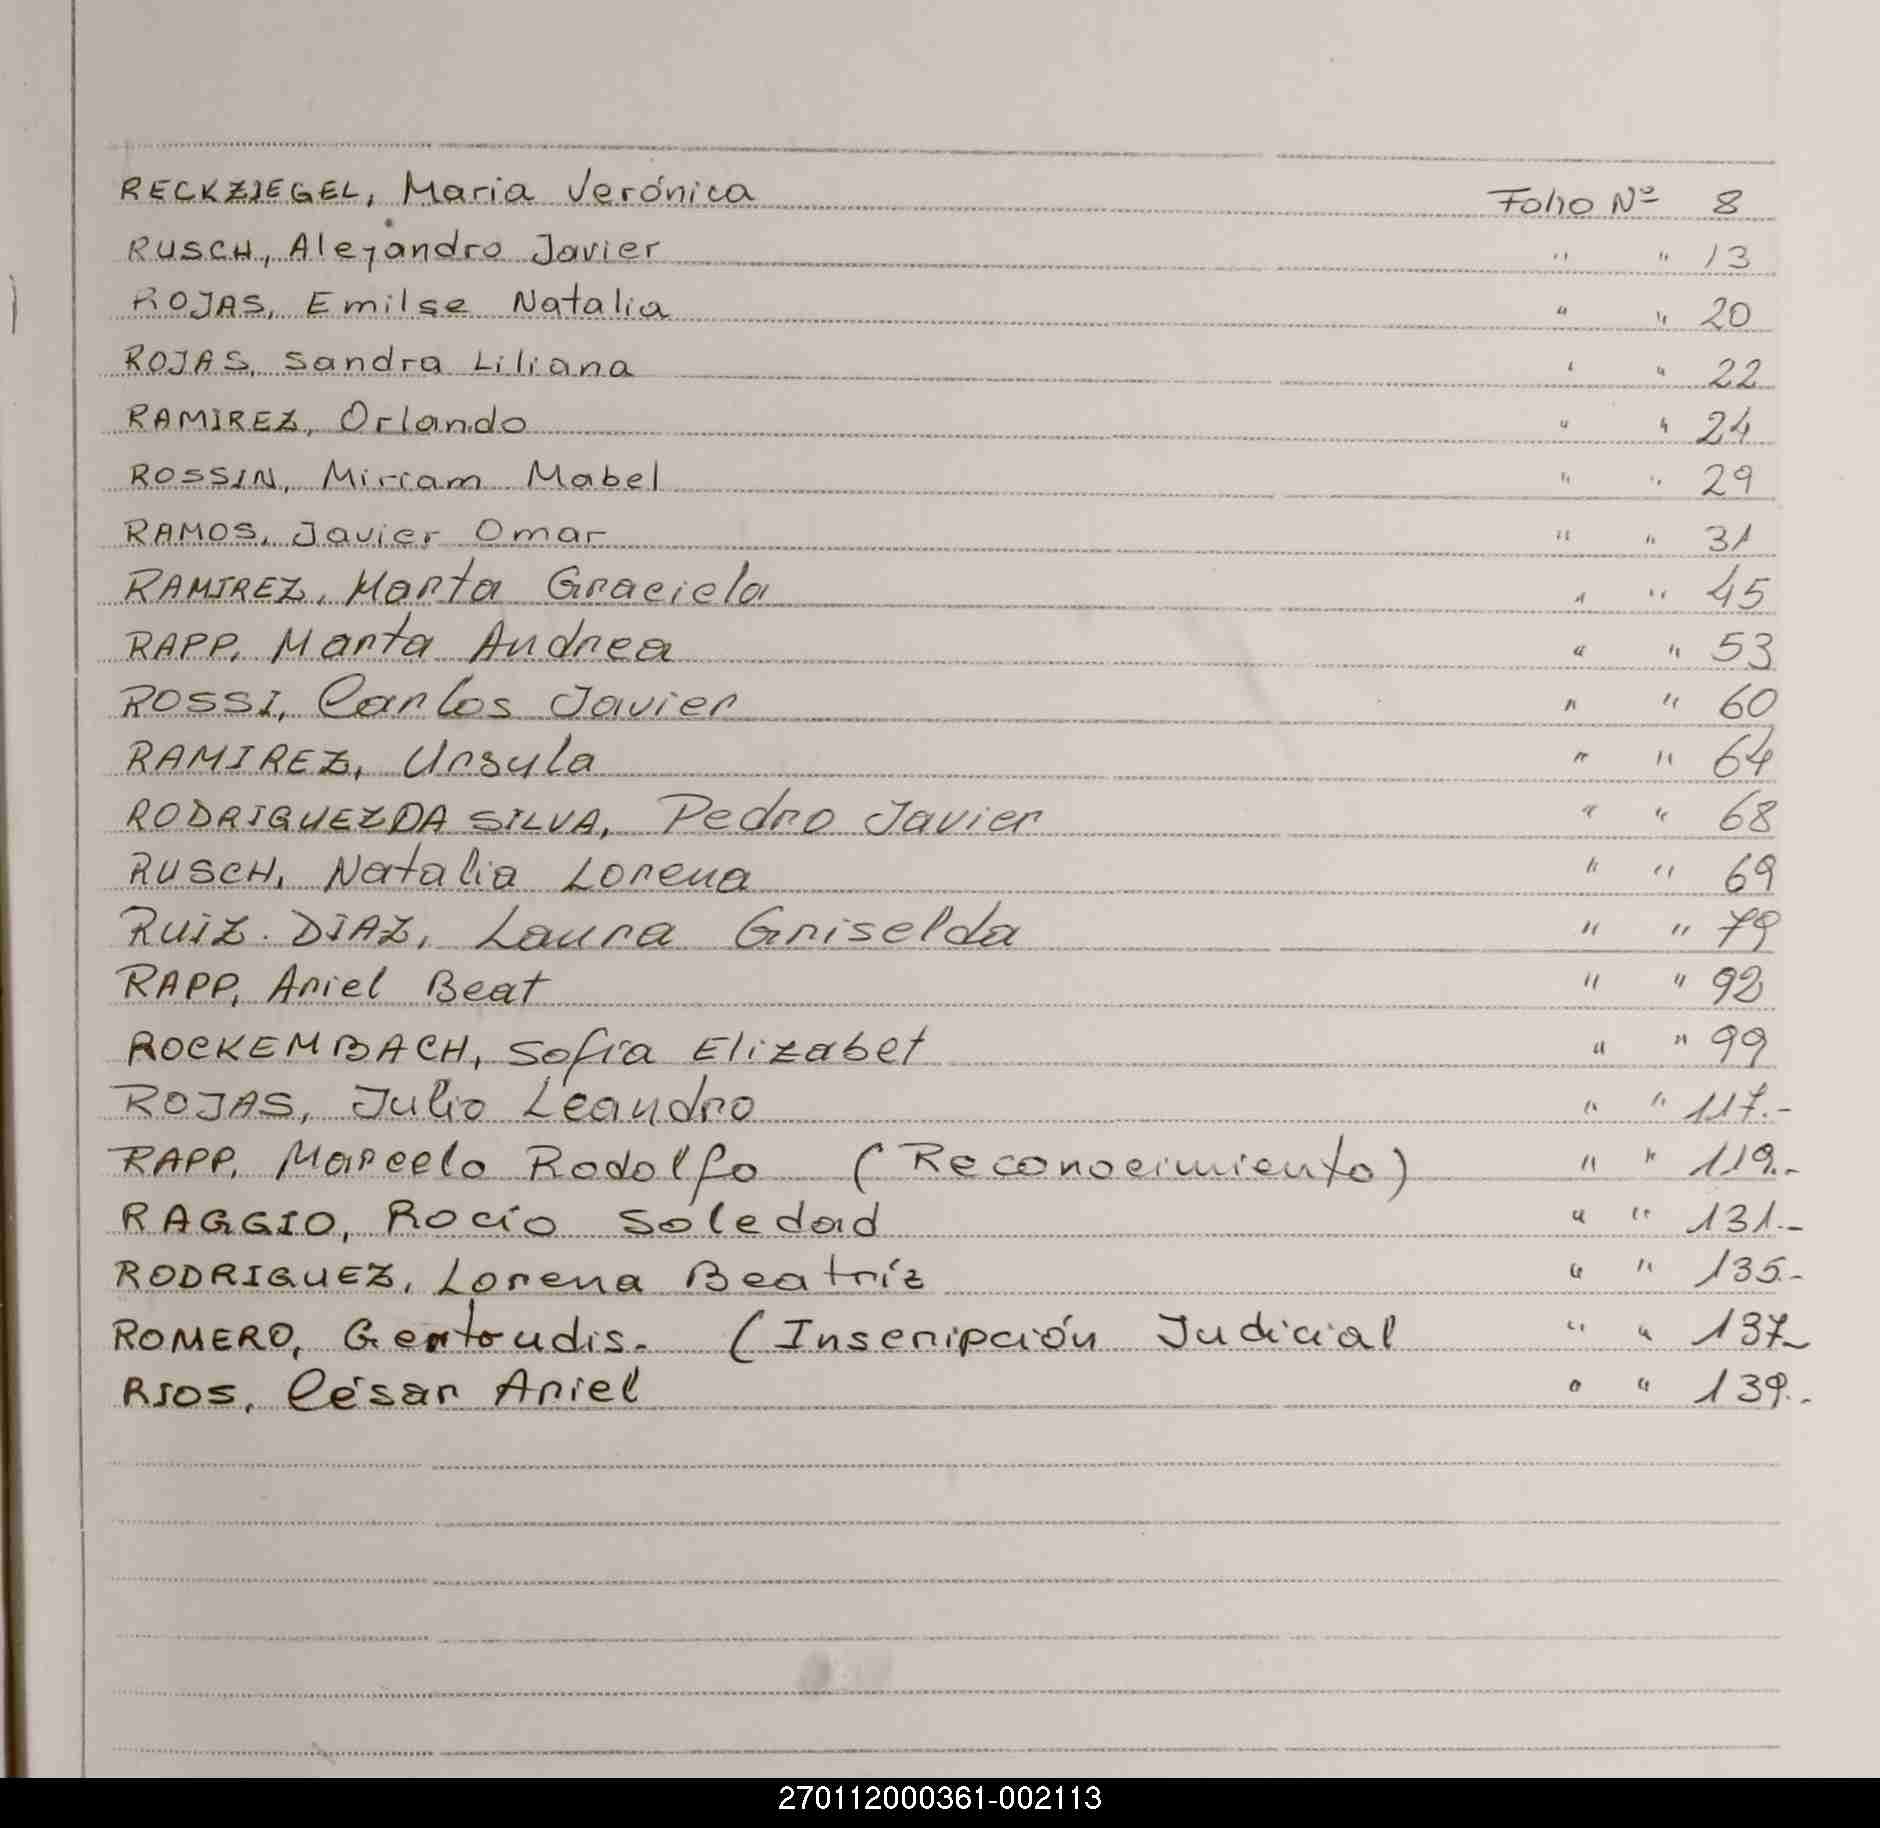 RECKZIEGEL, Maria Verónica Folio Nº 8
RUSCH, Alejandro Javier " " 13
ROJAS, Emilse Natalia " " 20
ROJAS, Sandra Liliana " " 22
RAMIREZ, Orlando " " 24
ROSSIN, Miriam Mabel " " 29
RAMOS, Javier Omar " " 31
RAMIREZ, Marta Graciela " " 45
RAPP, Marta Andrea " " 53
ROSSI, Carlos Javier " " 60
RAMIREZ, Ursula " " 64
RODRIGUEZ DA SILVA, Pedro Javier " " 68
RUSCH, Natalia Lorena " " 69
RUIZ. DIAZ, Laura Griselda " " 79
RAPP, Ariel Beat " " 92
ROCKEMBACH, Sofía Elizabet " " 99
ROJAS, Julio Leandro " " 117.-
RAPP, Marcelo Rodolfo (Reconocimiento) " " 119.-
RAGGIO, Rocío Soledad " " 131.-
RODRIGUEZ, Lorena Beatríz " " 135.-
ROMERO, Gertrudis. (Inscripción Judicial " " 137-
RIOS, César Ariel " " 139.-
270112000361-002113